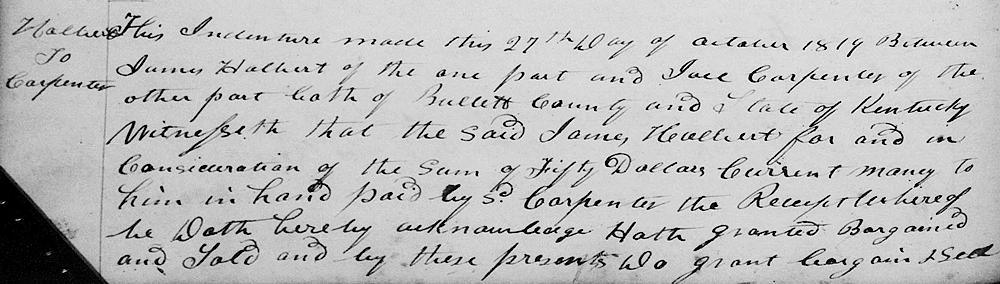 Halbert
To
Carpenter
This Indenture made this 27th Day of october 1819 Between
James Halbert of the one part and Joel Carpenter of the
other part both of Bullett County and State of Kentucky
Witnesseth that the said James Halbert for and in
Consideration of the Sum of Fifty Dollars Current money to
him in hand paid by sd. Carpenter the Receipt whereof
he Doth hereby acknowledge Hath granted Bargained
and Sold and by these presents Do grant bargain & Sell